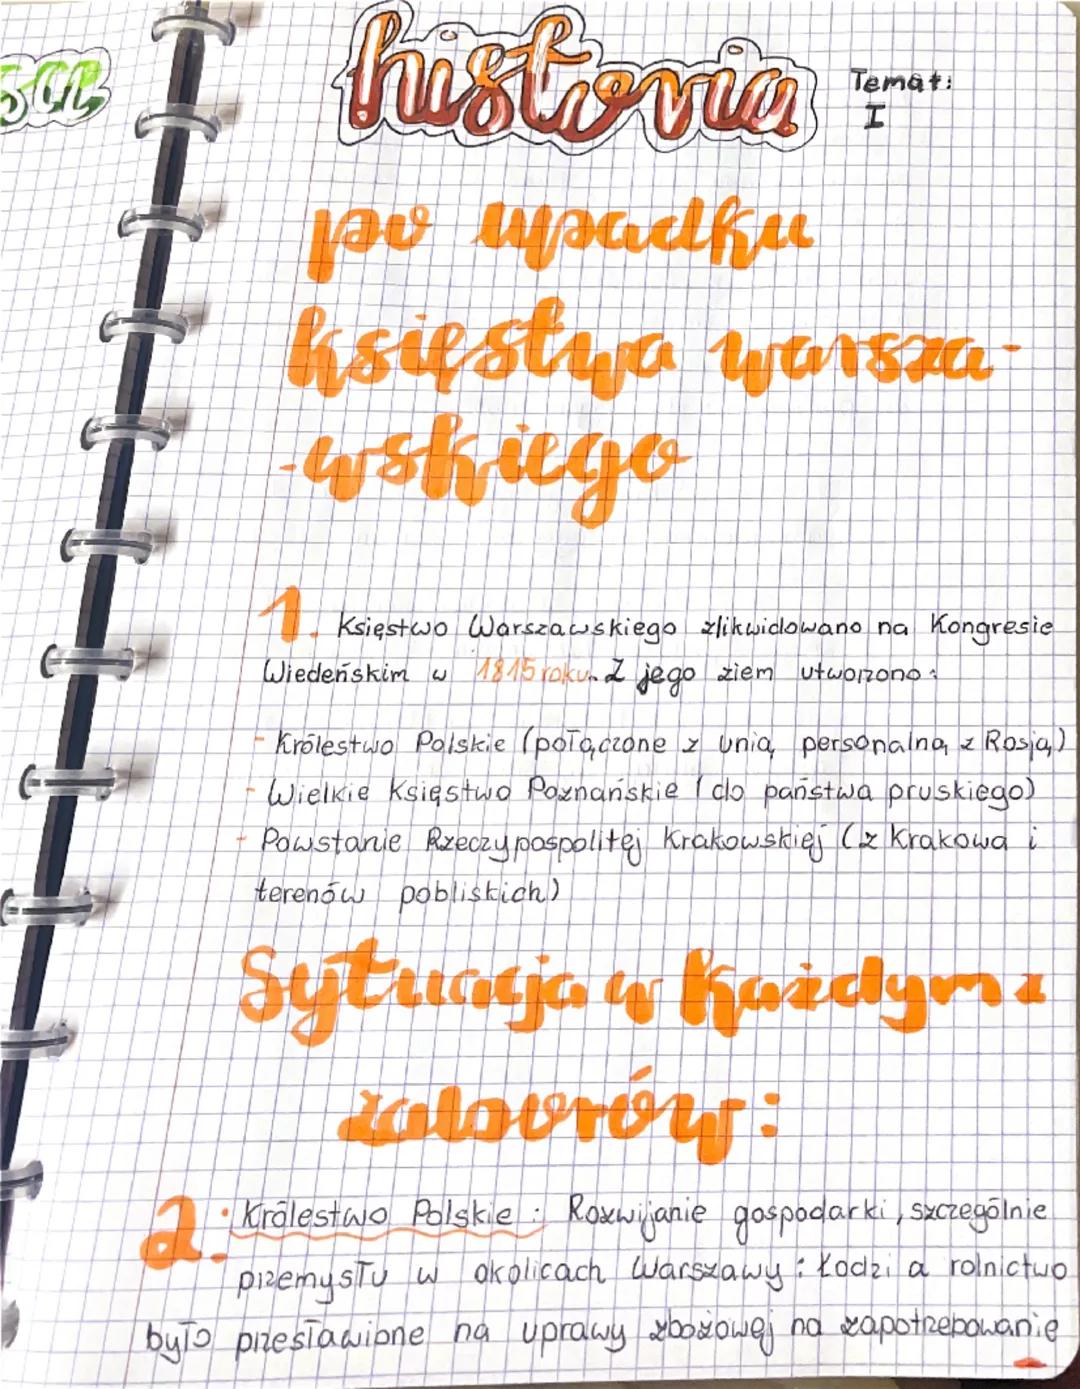 historia
Temat:
I
po upadku
księstwa warsza-
-wskiego
1. Księstwo Warszawskiego zlikwidowano na Kongresie
Wiedeńskim w 1815 roku. Z jego ziem utworzono:
- Królestwo Polskie (połączone z unią personalną z Rosją)
- Wielkie Księstwo Poznańskie (do państwa pruskiego)
- Powstanie Rzeczypospolitej Krakowskiej (z Krakowa i
terenów pobliskich)
Sytuacja w każdym z
zaborów:
2. · Królestwo Polskie: Rozwijanie gospodarki, szczególnie
przemysłu w okolicach Warszawy: Łodzi a rolnictwo
było przestawione na uprawy zbożowej na zapotrzebowanie